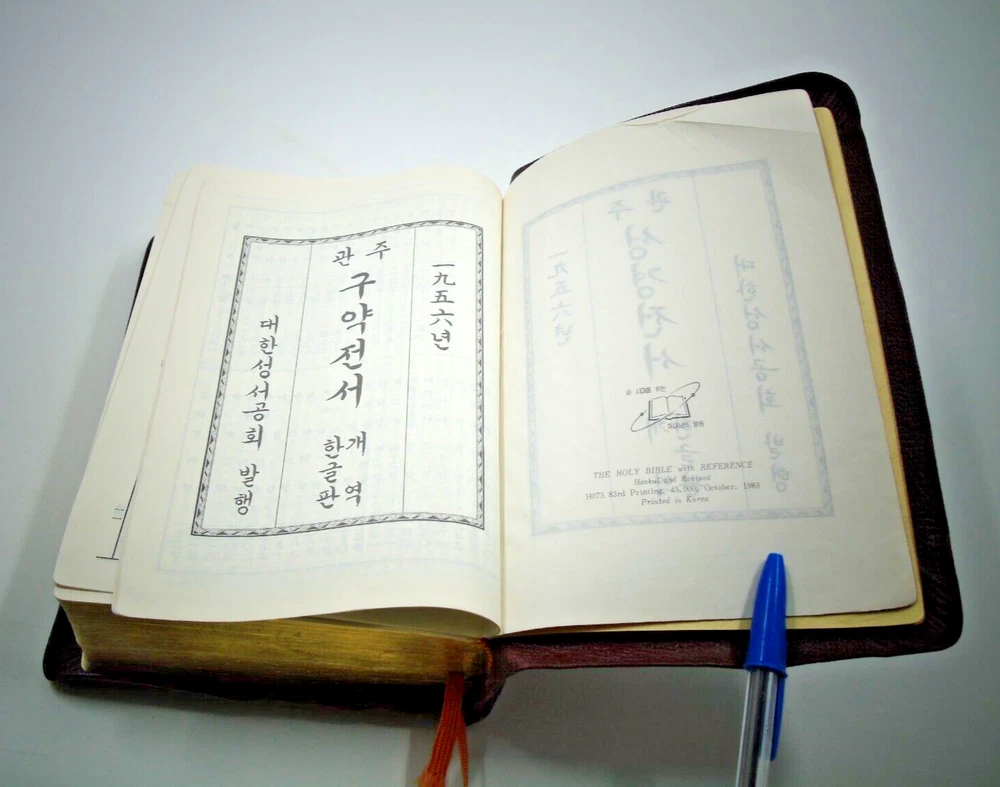 一九五六년
관주
구약전서
개역
한글판
대한성서공회 발행
THE HOLY BIBLE with REFERENCE
Hankul and Revised
H073 83rd Printing, 45,000, October, 1983
Printed in Korea